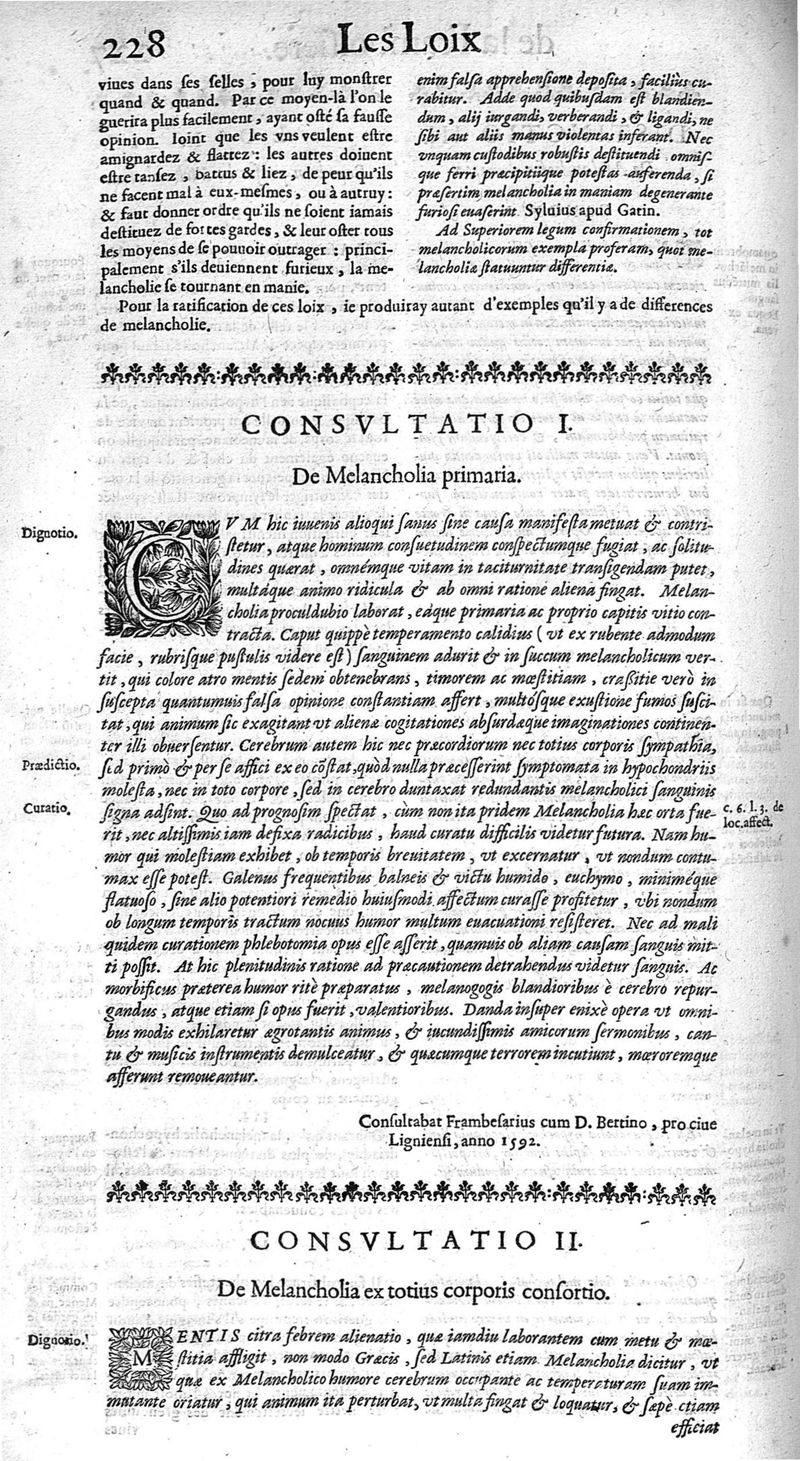 228 Les Loix
viues dans ses selles, pour luy monstrer
quand & quand. Par ce moyen-là l'on le
guerira plus facilement, ayant osté sa fausse
opinion. Ioint que les vns veulent estre
amignardez & flattez: les autres doiuent
estre tansez, battus & liez, de peur qu'ils
ne facent mal à eux-mesmes, ou à autruy:
& faut donner ordre qu'ils ne soient iamais
destituez de fortes gardes, & leur oster tous
les moyens de se pouuoir outrager: princi-
palement s'ils deuiennent furieux, la me-
lancholie se tournant en manie.
enim falsa apprehensione deposita, facilius cu-
rabitur. Adde quod quibusdam est blandien-
dum, alij iurgandi, verberandi, & ligandi, ne
sibi aut aliis manus violentas inferant. Nec
vnquam custodibus robustis destituendi omnis-
que ferri præcipitiique potestas auferenda, si
præsertim melancholia in maniam degenerante
furiosi euaserint. Syluius apud Gatin.
Ad Superiorem legum confirmationem, tot
melancholicorum exempla proferam, quot me-
lancholiæ statuuntur differentiæ.
Pour la ratification de ces loix, ie produiray autant d'exemples qu'il y a de differences
de melancholie.
CONSVLTATIO I.
De Melancholia primaria.
Dignotio.
CVM hic iuuenis alioqui sanus sine causa manifesta metuat & contri-
stetur, atque hominum consuetudinem conspectumque fugiat, ac solitu-
dines quærat, omnémque vitam in taciturnitate transigendam putet,
multáque animo ridicula & ab omni ratione aliena fingat. Melan-
cholia proculdubio laborat, eáque primaria ac proprio capitis vitio con-
tracta. Caput quippè temperamento calidius (vt ex rubente admodum
facie, rubrisque pustulis videre est) sanguinem adurit & in succum melancholicum ver-
tit, qui colore atro mentis sedem obtenebrans, timorem ac mœstitiam, crassitie verò in
suscepta quantumuis falsa opinione constantiam affert, multósque exustione fumos susci-
tat, qui animum sic exagitant vt alienæ cogitationes absurdæque imaginationes continen-
ter illi obuersentur. Cerebrum autem hic nec præcordiorum nec totius corporis sympathia,
Prædictio.
sed primò & per se affici ex eo cõstat, quòd nulla præcesserint symptomata in hypochondriis
molesta, nec in toto corpore, sed in cerebro duntaxat redundantis melancholici sanguinis
Curatio.
signa adsint. Quo ad prognosim spectat, cùm non ita pridem Melancholia hæc orta fue-
c. 6. l. 3. de
loc. affect.
rit, nec altissimis iam defixa radicibus, haud curatu difficilis videtur futura. Nam hu-
mor qui molestiam exhibet, ob temporis breuitatem, vt excernatur, vt nondum contu-
max esse potest. Galenus frequentibus balneis & victu humido, euchymo, miniméque
flatuoso, sine alio potentiori remedio huiusmodi affectum curasse profitetur, vbi nondum
ob longum temporis tractum nocuus humor multum euacuationi resisteret. Nec ad mali
quidem curationem phlebotomia opus esse asserit, quamuis ob aliam causam sanguis mit-
ti possit. At hic plenitudinis ratione ad præcautionem detrahendus videtur sanguis. Ac
morbificus præterea humor ritè præparatus, melanogogis blandioribus è cerebro repur-
gandus, atque etiam si opus fuerit, valentioribus. Danda insuper enixè opera vt omni-
bus modis exhilaretur ægrotantis animus, & iucundissimis amicorum sermonibus, can-
tu & musicis instrumentis demulceatur, & quæcumque terrorem incutiunt, mœroremque
afferunt remoueantur.
Consultabat Frambesarius cum D. Bertino, pro ciue
Ligniensi, anno 1592.
CONSVLTATIO II.
De Melancholia ex totius corporis consortio.
Dignotio.
MENTIS citra febrem alienatio, quæ iamdiu laborantem cum metu & mœ-
stitia affligit, non modo Græcis, sed Latinis etiam Melancholia dicitur, vt
quæ ex Melancholico humore cerebrum occupante ac temperaturam suam im-
mutante oriatur, qui animum ita perturbat, vt multa fingat & loquatur, & sæpè etiam
efficiat